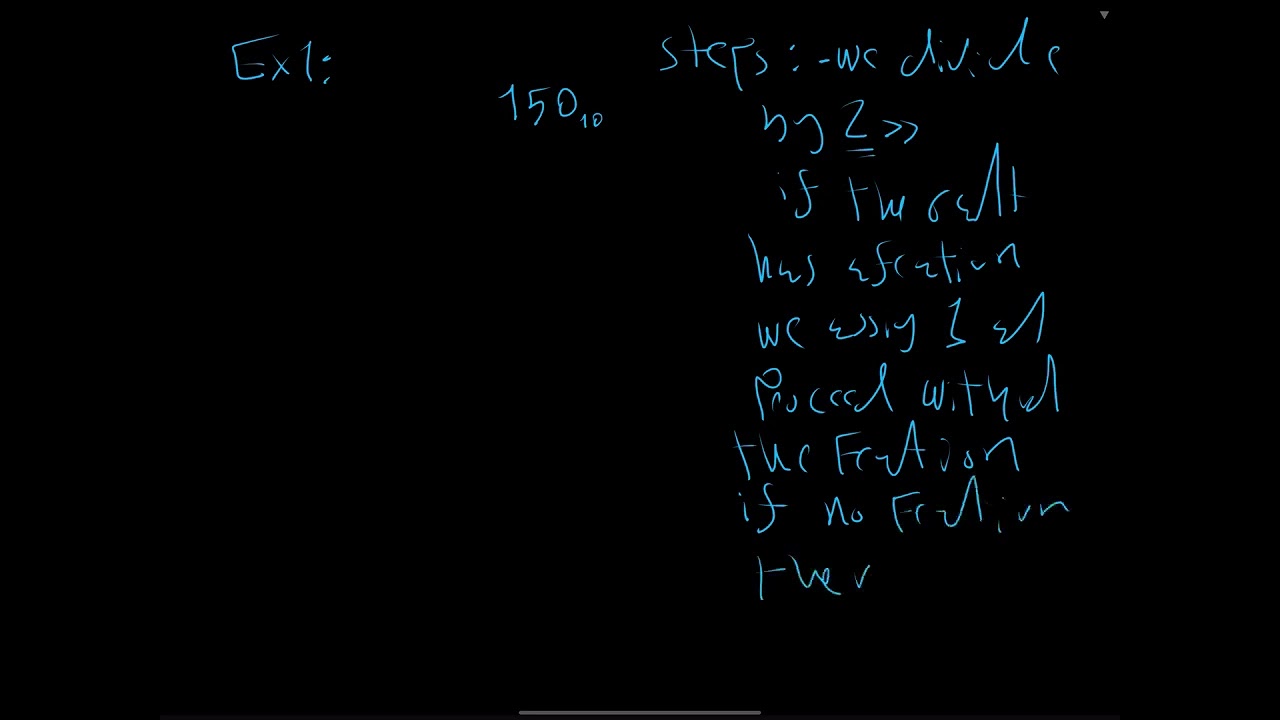 Ex1:
150₁₀
steps: -we divide
by 2 >>
if the reslt
has afraction
we assig 1 ad
Proceed without
the Fraction
if no Fraction
then